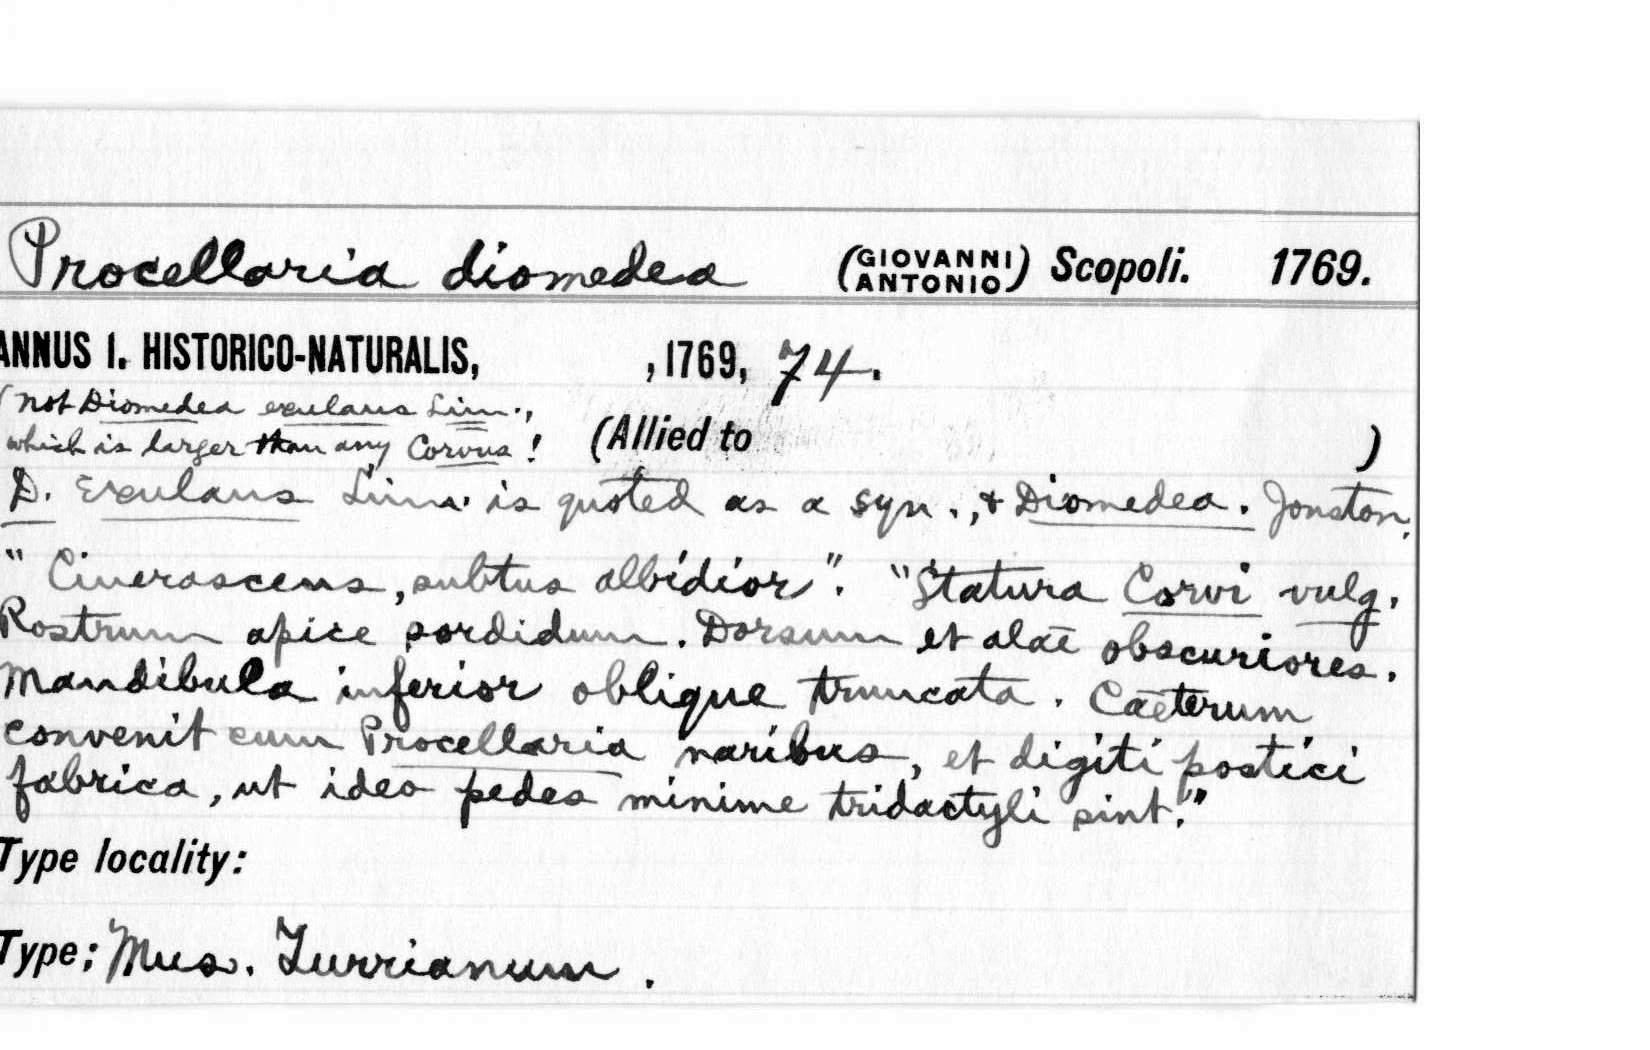 Procellaria diomedea (GIOVANNI ANTONIO) Scopoli. 1769.
ANNUS I. HISTORICO-NATURALIS, , 1769, 74.
(not Diomedea exulans Linn.,
which is larger than any Corvus! (Allied to )
D. Exulans Linn. is quoted as a syn., & Diomedea. Jonston.
"Cinerascens, subtus albidior". "Statura Corvi vulg.
Rostrum apice sordidum. Dorsum et alae obscuriores.
Mandibula inferior oblique truncata. Caeterum
convenit cum Procellaria naribus, et digiti postici
fabrica, ut ideo pedes minime tridactyli sint."
Type locality:
Type; Mus. Turrianum.